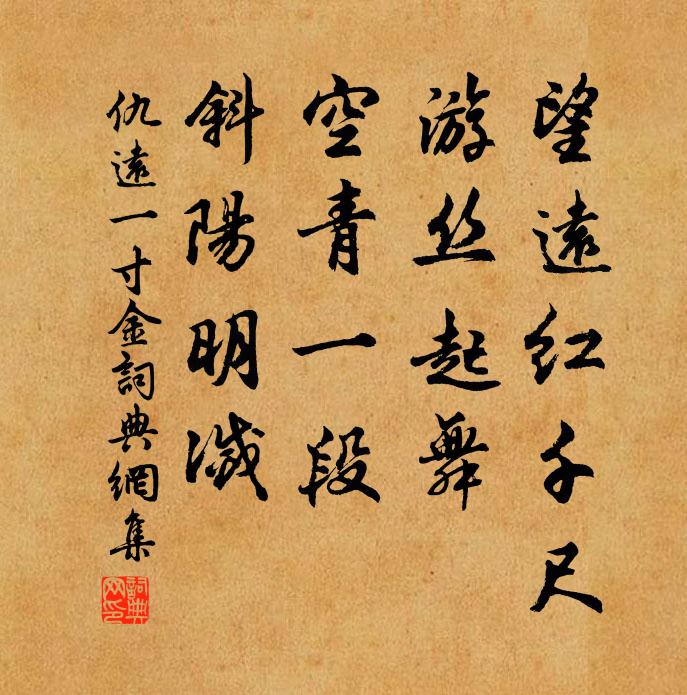 望遠紅千尺
游丝起舞
空青一段
斜陽明滅
仇遠一寸金詞典網集
詞典网印